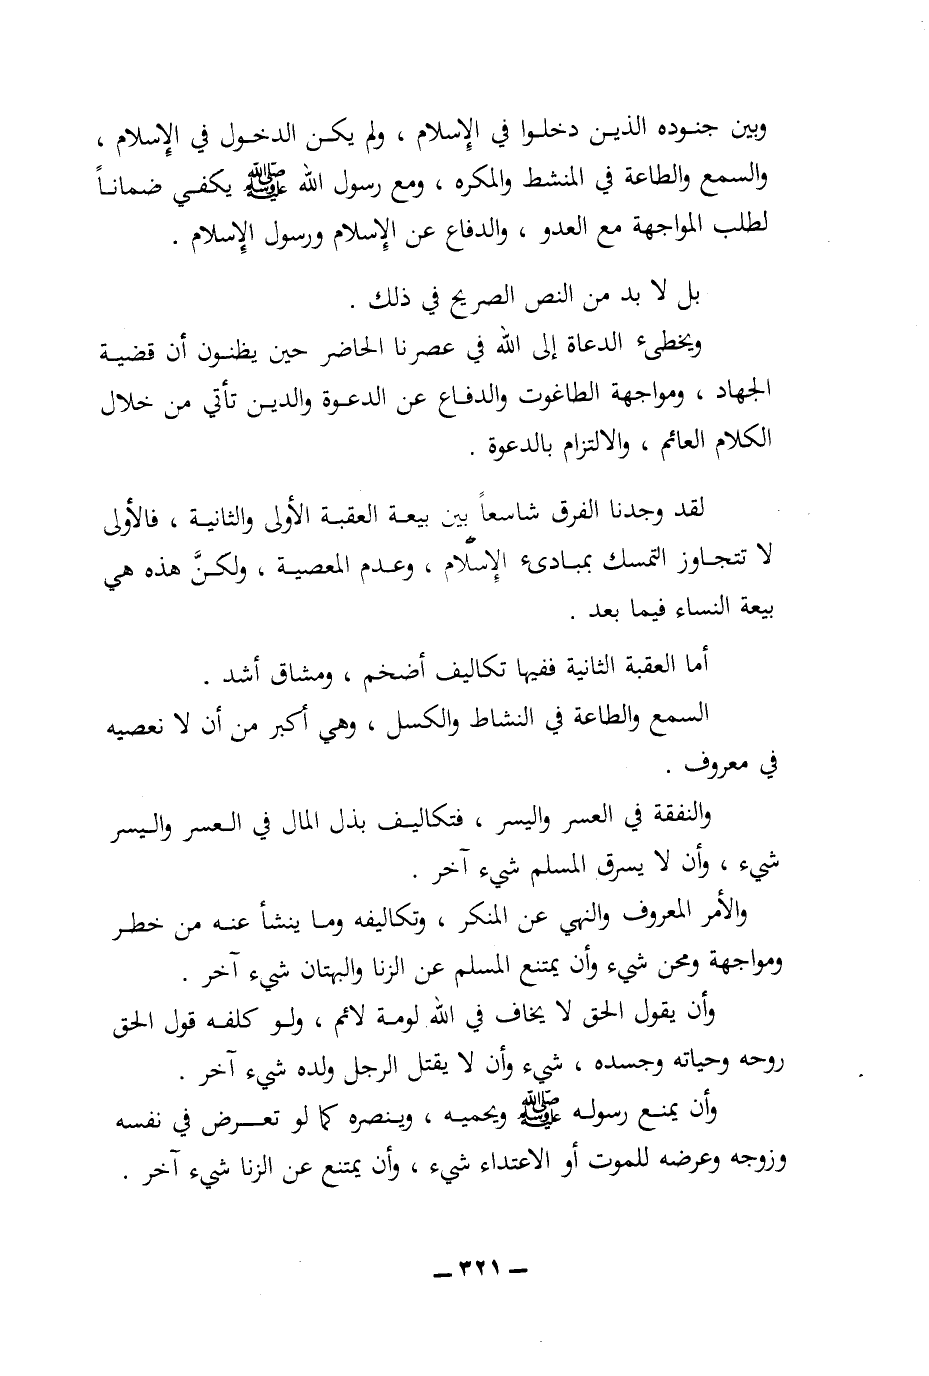 وبين جنوده الذين دخلوا في الإسلام ، ولم يكن الدخول في الإسلام ،
والسمع والطاعة في المنشط والمكره ، ومع رسول الله ﷺ يكفي ضماناً
لطلب المواجهة مع العدو ، والدفاع عن الإسلام ورسول الإسلام .
بل لا بد من النص الصريح في ذلك .
ويخطىء الدعاة إلى الله في عصرنا الحاضر حين يظنون أن قضية
الجهاد ، ومواجهة الطاغوت والدفاع عن الدعوة والدين تأتي من خلال
الكلام العائم ، والالتزام بالدعوة .
لقد وجدنا الفرق شاسعاً بين بيعة العقبة الأولى والثانية ، فالأولى
لا تتجاوز التمسك بمبادىء الإسلام ، وعدم المعصية ، ولكنَّ هذه هي
بيعة النساء فيما بعد .
أما العقبة الثانية ففيها تكاليف أضخم ، ومشاق أشد .
السمع والطاعة في النشاط والكسل ، وهي أكبر من أن لا نعصيه
في معروف .
والنفقة في العسر واليسر ، فتكاليف بذل المال في العسر واليسر
شيء ، وأن لا يسرق المسلم شيء آخر .
والأمر المعروف والنهي عن المنكر ، وتكاليفه وما ينشأ عنه من خطر
ومواجهة ومحن شيء وأن يمتنع المسلم عن الزنا والبهتان شيء آخر .
وأن يقول الحق لا يخاف في الله لومة لائم ، ولو كلفه قول الحق
روحه وحياته وجسده ، شيء وأن لا يقتل الرجل ولده شيء آخر .
وأن يمنع رسوله ﷺ ويحميه ، وينصره كما لو تعرض في نفسه
وزوجه وعرضه للموت أو الاعتداء شيء ، وأن يمتنع عن الزنا شيء آخر .
– ٣٢١ –